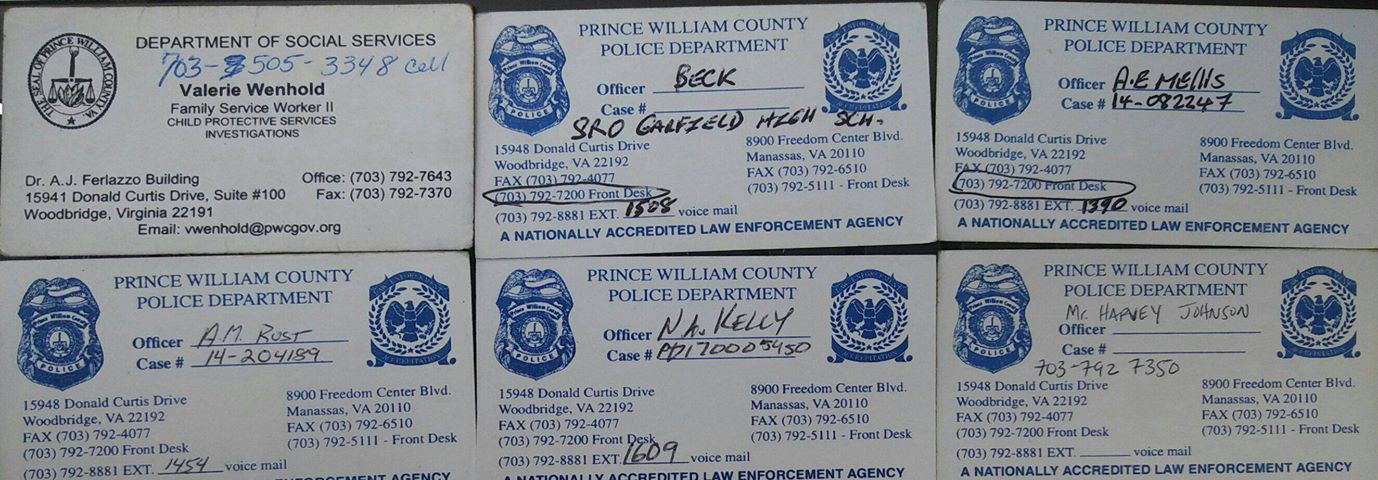 THE SEAL OF PRINCE WILLIAM COUNTY, VA
DEPARTMENT OF SOCIAL SERVICES
703-505-3348 cell
Valerie Wenhold
Family Service Worker II
CHILD PROTECTIVE SERVICES
INVESTIGATIONS
Dr. A.J. Ferlazzo Building
Office: (703) 792-7643
15941 Donald Curtis Drive, Suite #100
Fax: (703) 792-7370
Woodbridge, Virginia 22191
Email: vwenhold@pwcgov.org
PRINCE WILLIAM COUNTY
POLICE DEPARTMENT
Prince William County
POLICE
ACCREDITATION
Officer BECK
Case #
SRO GARFIELD HIGH SCH.
15948 Donald Curtis Drive
Woodbridge, VA 22192
FAX (703) 792-4077
(703) 792-7200 Front Desk
(703) 792-8881 EXT. 1508 voice mail
8900 Freedom Center Blvd.
Manassas, VA 20110
FAX (703) 792-6510
(703) 792-5111 - Front Desk
A NATIONALLY ACCREDITED LAW ENFORCEMENT AGENCY
PRINCE WILLIAM COUNTY
POLICE DEPARTMENT
Prince William County
POLICE
ACCREDITATION
Officer A.E MEllIS
Case # 14-082247
15948 Donald Curtis Drive
Woodbridge, VA 22192
FAX (703) 792-4077
(703) 792-7200 Front Desk
(703) 792-8881 EXT. 1390 voice mail
8900 Freedom Center Blvd.
Manassas, VA 20110
FAX (703) 792-6510
(703) 792-5111 - Front Desk
A NATIONALLY ACCREDITED LAW ENFORCEMENT AGENCY
PRINCE WILLIAM COUNTY
POLICE DEPARTMENT
Prince William County
POLICE
ACCREDITATION
Officer A.M. RUST
Case # 14-204189
15948 Donald Curtis Drive
Woodbridge, VA 22192
FAX (703) 792-4077
(703) 792-7200 Front Desk
(703) 792-8881 EXT. 1454 voice mail
8900 Freedom Center Blvd.
Manassas, VA 20110
FAX (703) 792-6510
(703) 792-5111 - Front Desk
ENFORCEMENT AGENCY
PRINCE WILLIAM COUNTY
POLICE DEPARTMENT
Prince William County
POLICE
ACCREDITATION
Officer N.A. KELLY
Case # PD170005450
15948 Donald Curtis Drive
Woodbridge, VA 22192
FAX (703) 792-4077
(703) 792-7200 Front Desk
(703) 792-8881 EXT. 1609 voice mail
8900 Freedom Center Blvd.
Manassas, VA 20110
FAX (703) 792-6510
(703) 792-5111 - Front Desk
A NATIONALLY ACCREDITED LAW ENFORCEMENT AGENCY
PRINCE WILLIAM COUNTY
POLICE DEPARTMENT
Prince William County
POLICE
ACCREDITATION
Mr. HARVEY JOHNSON
Officer
Case #
703-792 7350
15948 Donald Curtis Drive
Woodbridge, VA 22192
FAX (703) 792-4077
(703) 792-7200 Front Desk
(703) 792-8881 EXT. voice mail
8900 Freedom Center Blvd.
Manassas, VA 20110
FAX (703) 792-6510
(703) 792-5111 - Front Desk
A NATIONALLY ACCREDITED LAW ENFORCEMENT AGENCY